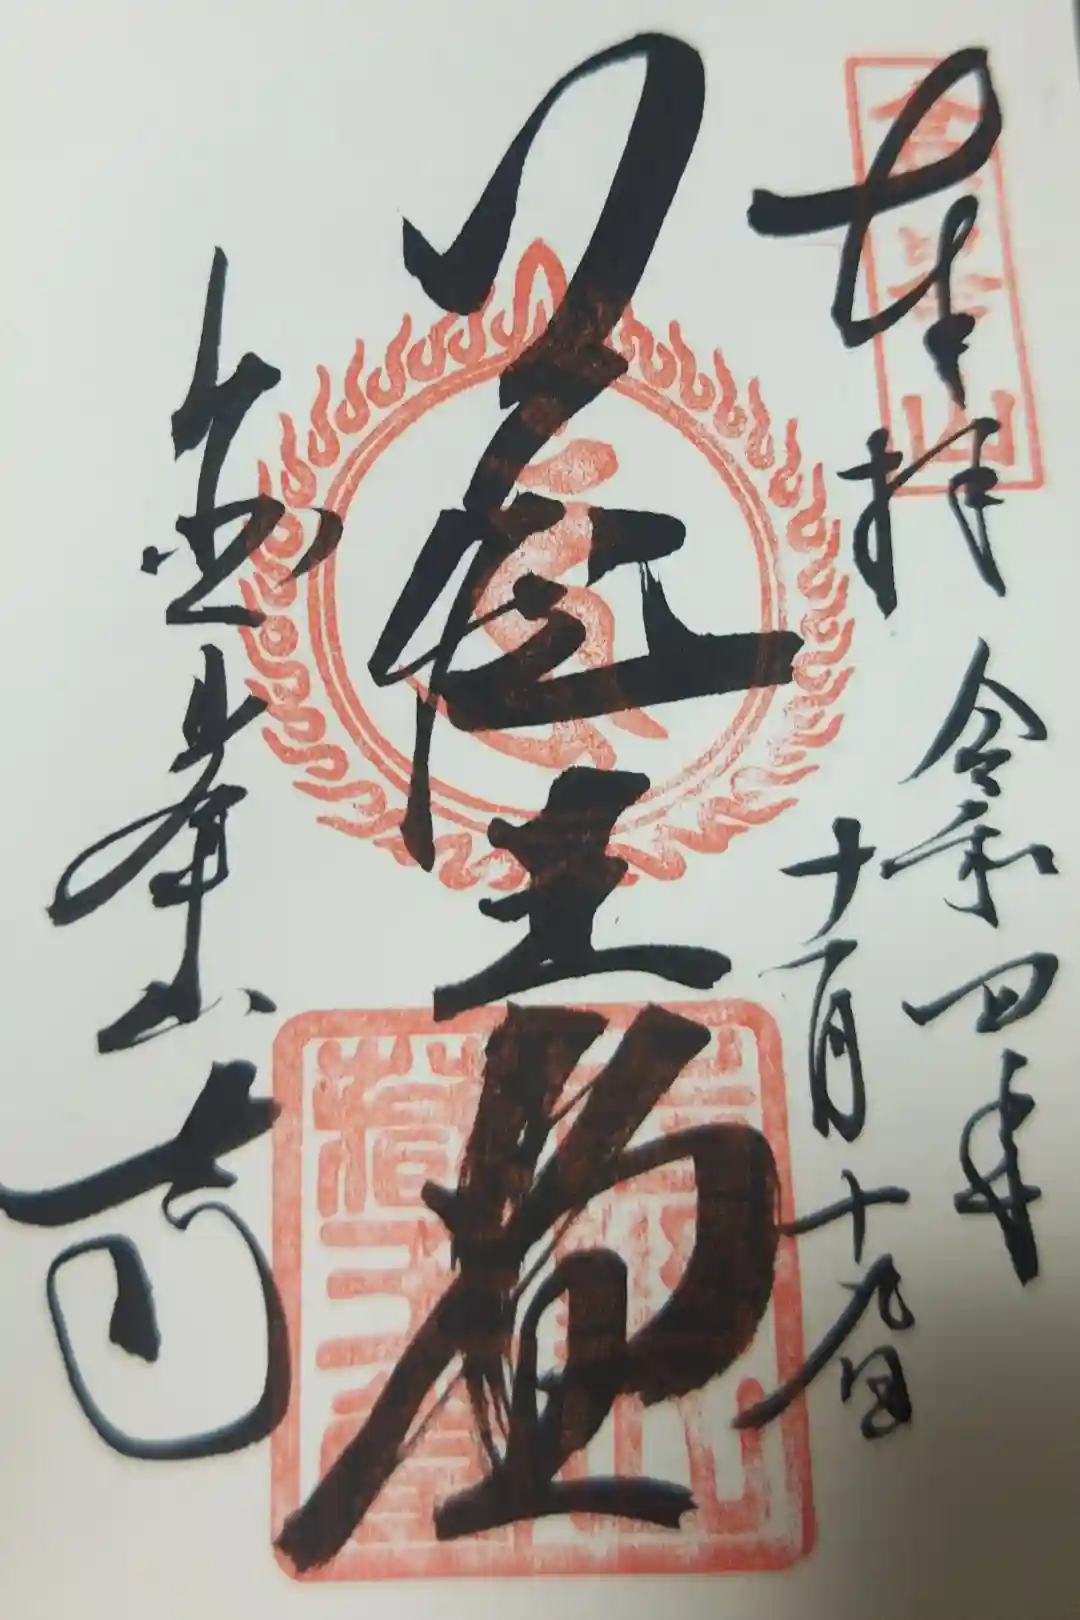 金峯山
奉拝
令和四年
十一月十九日
蔵王堂
金峯山寺